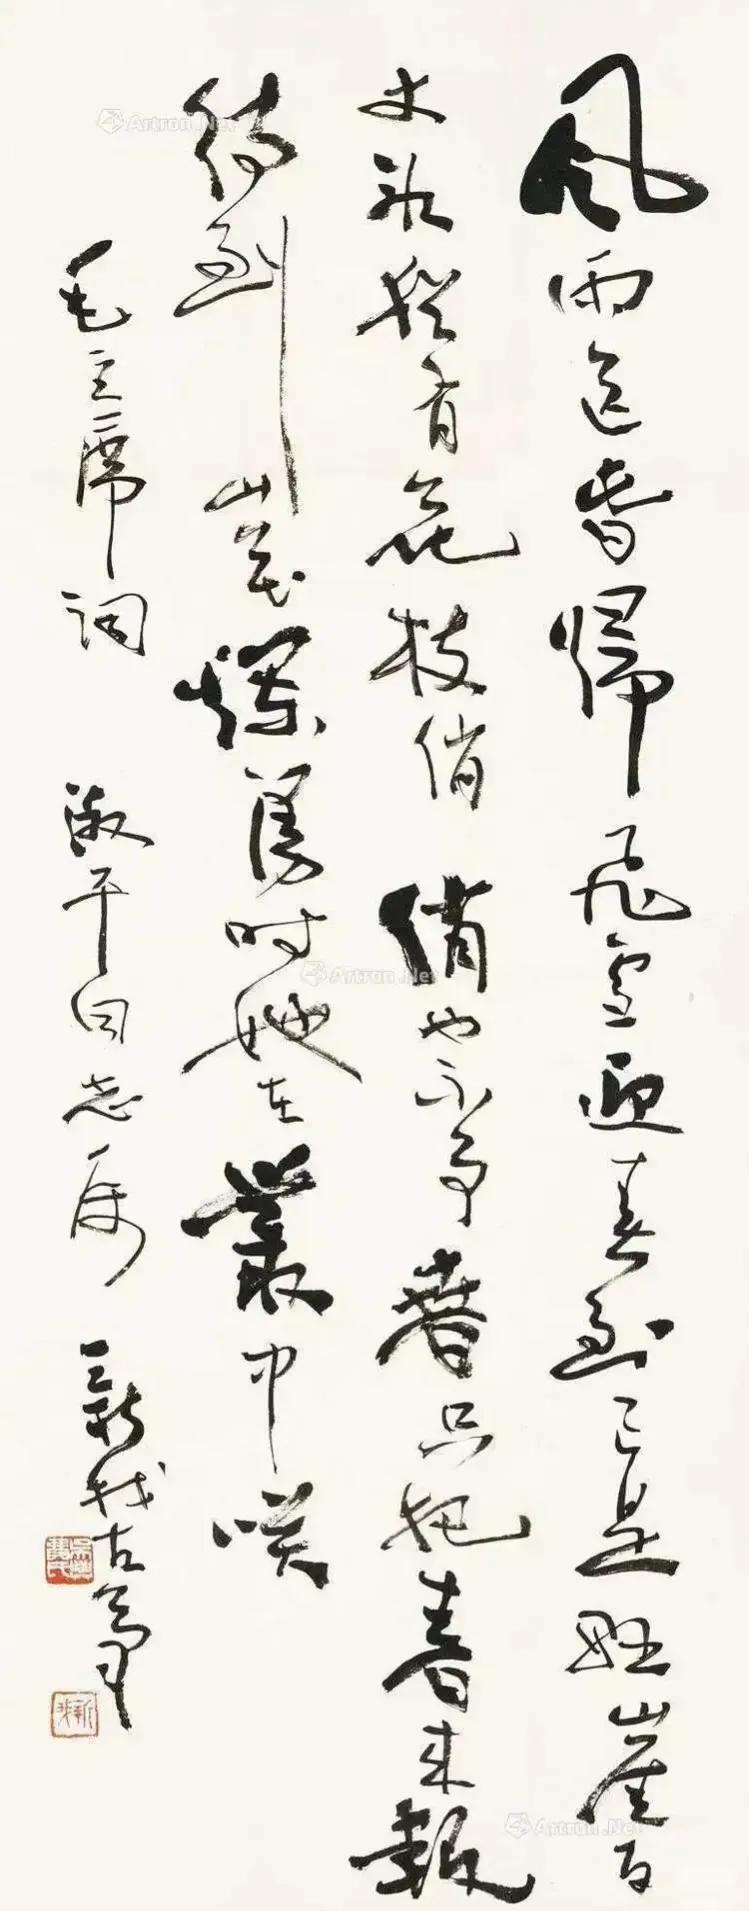 风雨送春歸飛雪迎春到已是悬崖百
丈冰猶有花枝俏俏也不争春只把春来報
待到山花爛漫时她在叢中咲
毛主席词 淑平同志属 新我左筆
新我
Artron.Net
Artron.Net
Artron.Net